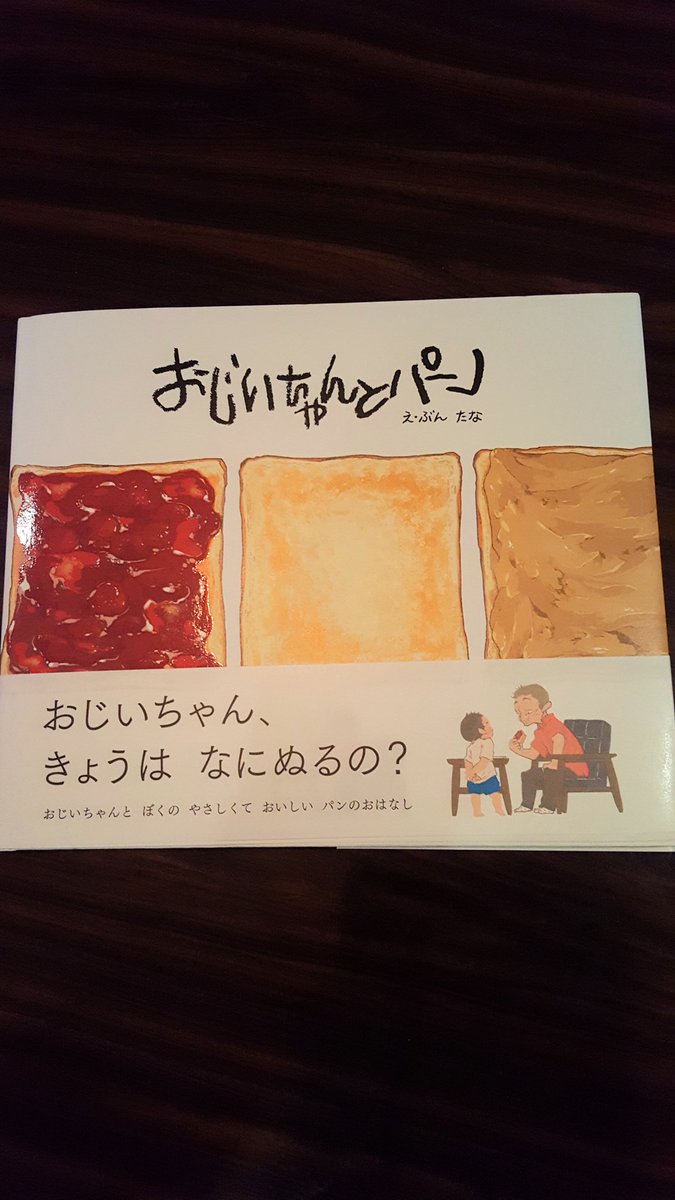 おじいちゃんとパン
え・ぶん たな
おじいちゃん、
きょうは なにぬるの?
おじいちゃんと ぼくの やさしくて おいしい パンのおはなし